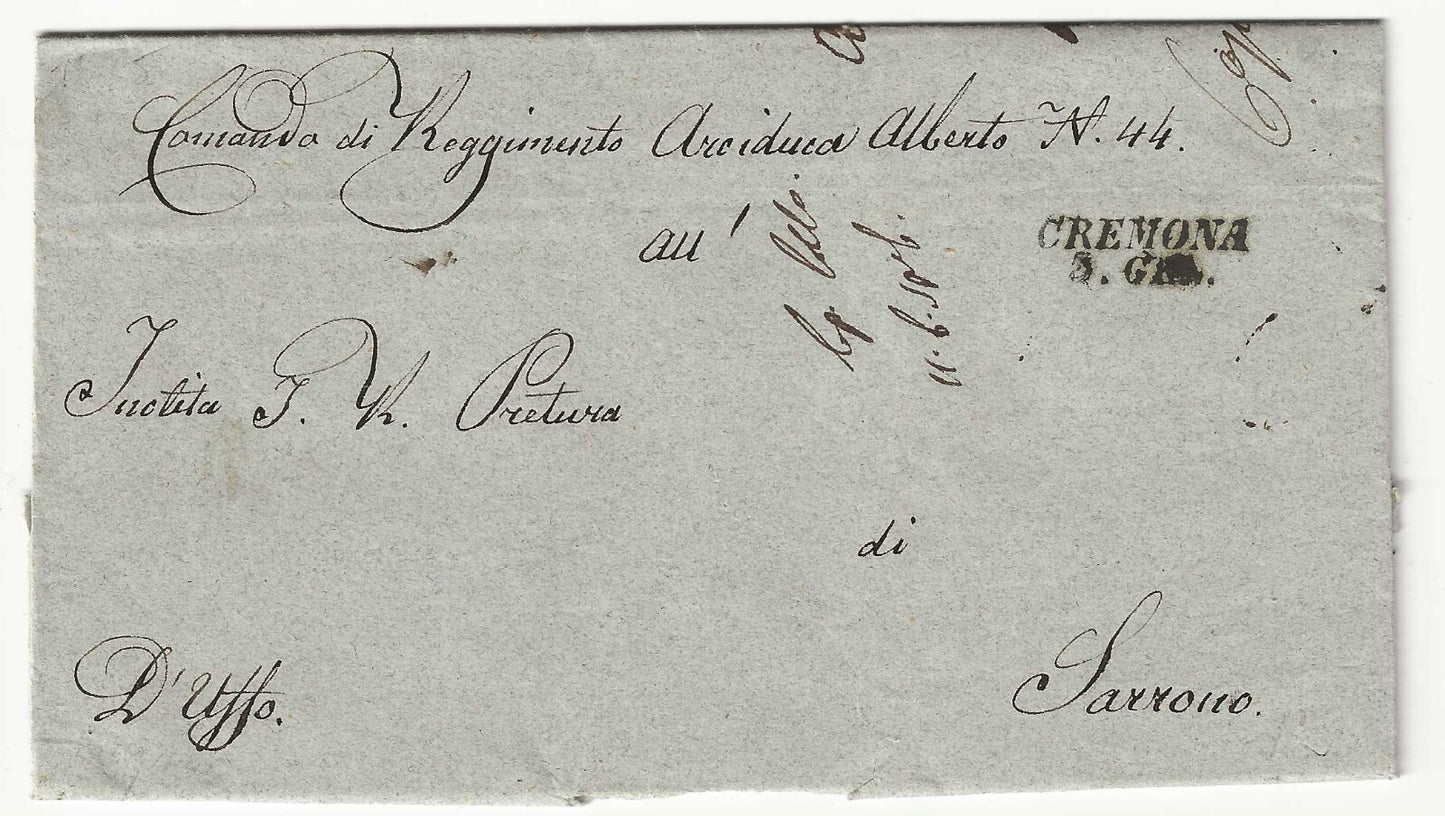 Comando di Reggimento Arciduca Alberto N. 44.
all'
CREMONA
3. GEN.
Inclita I. R. Pretura
di
D'Uffo.
Sarrono.